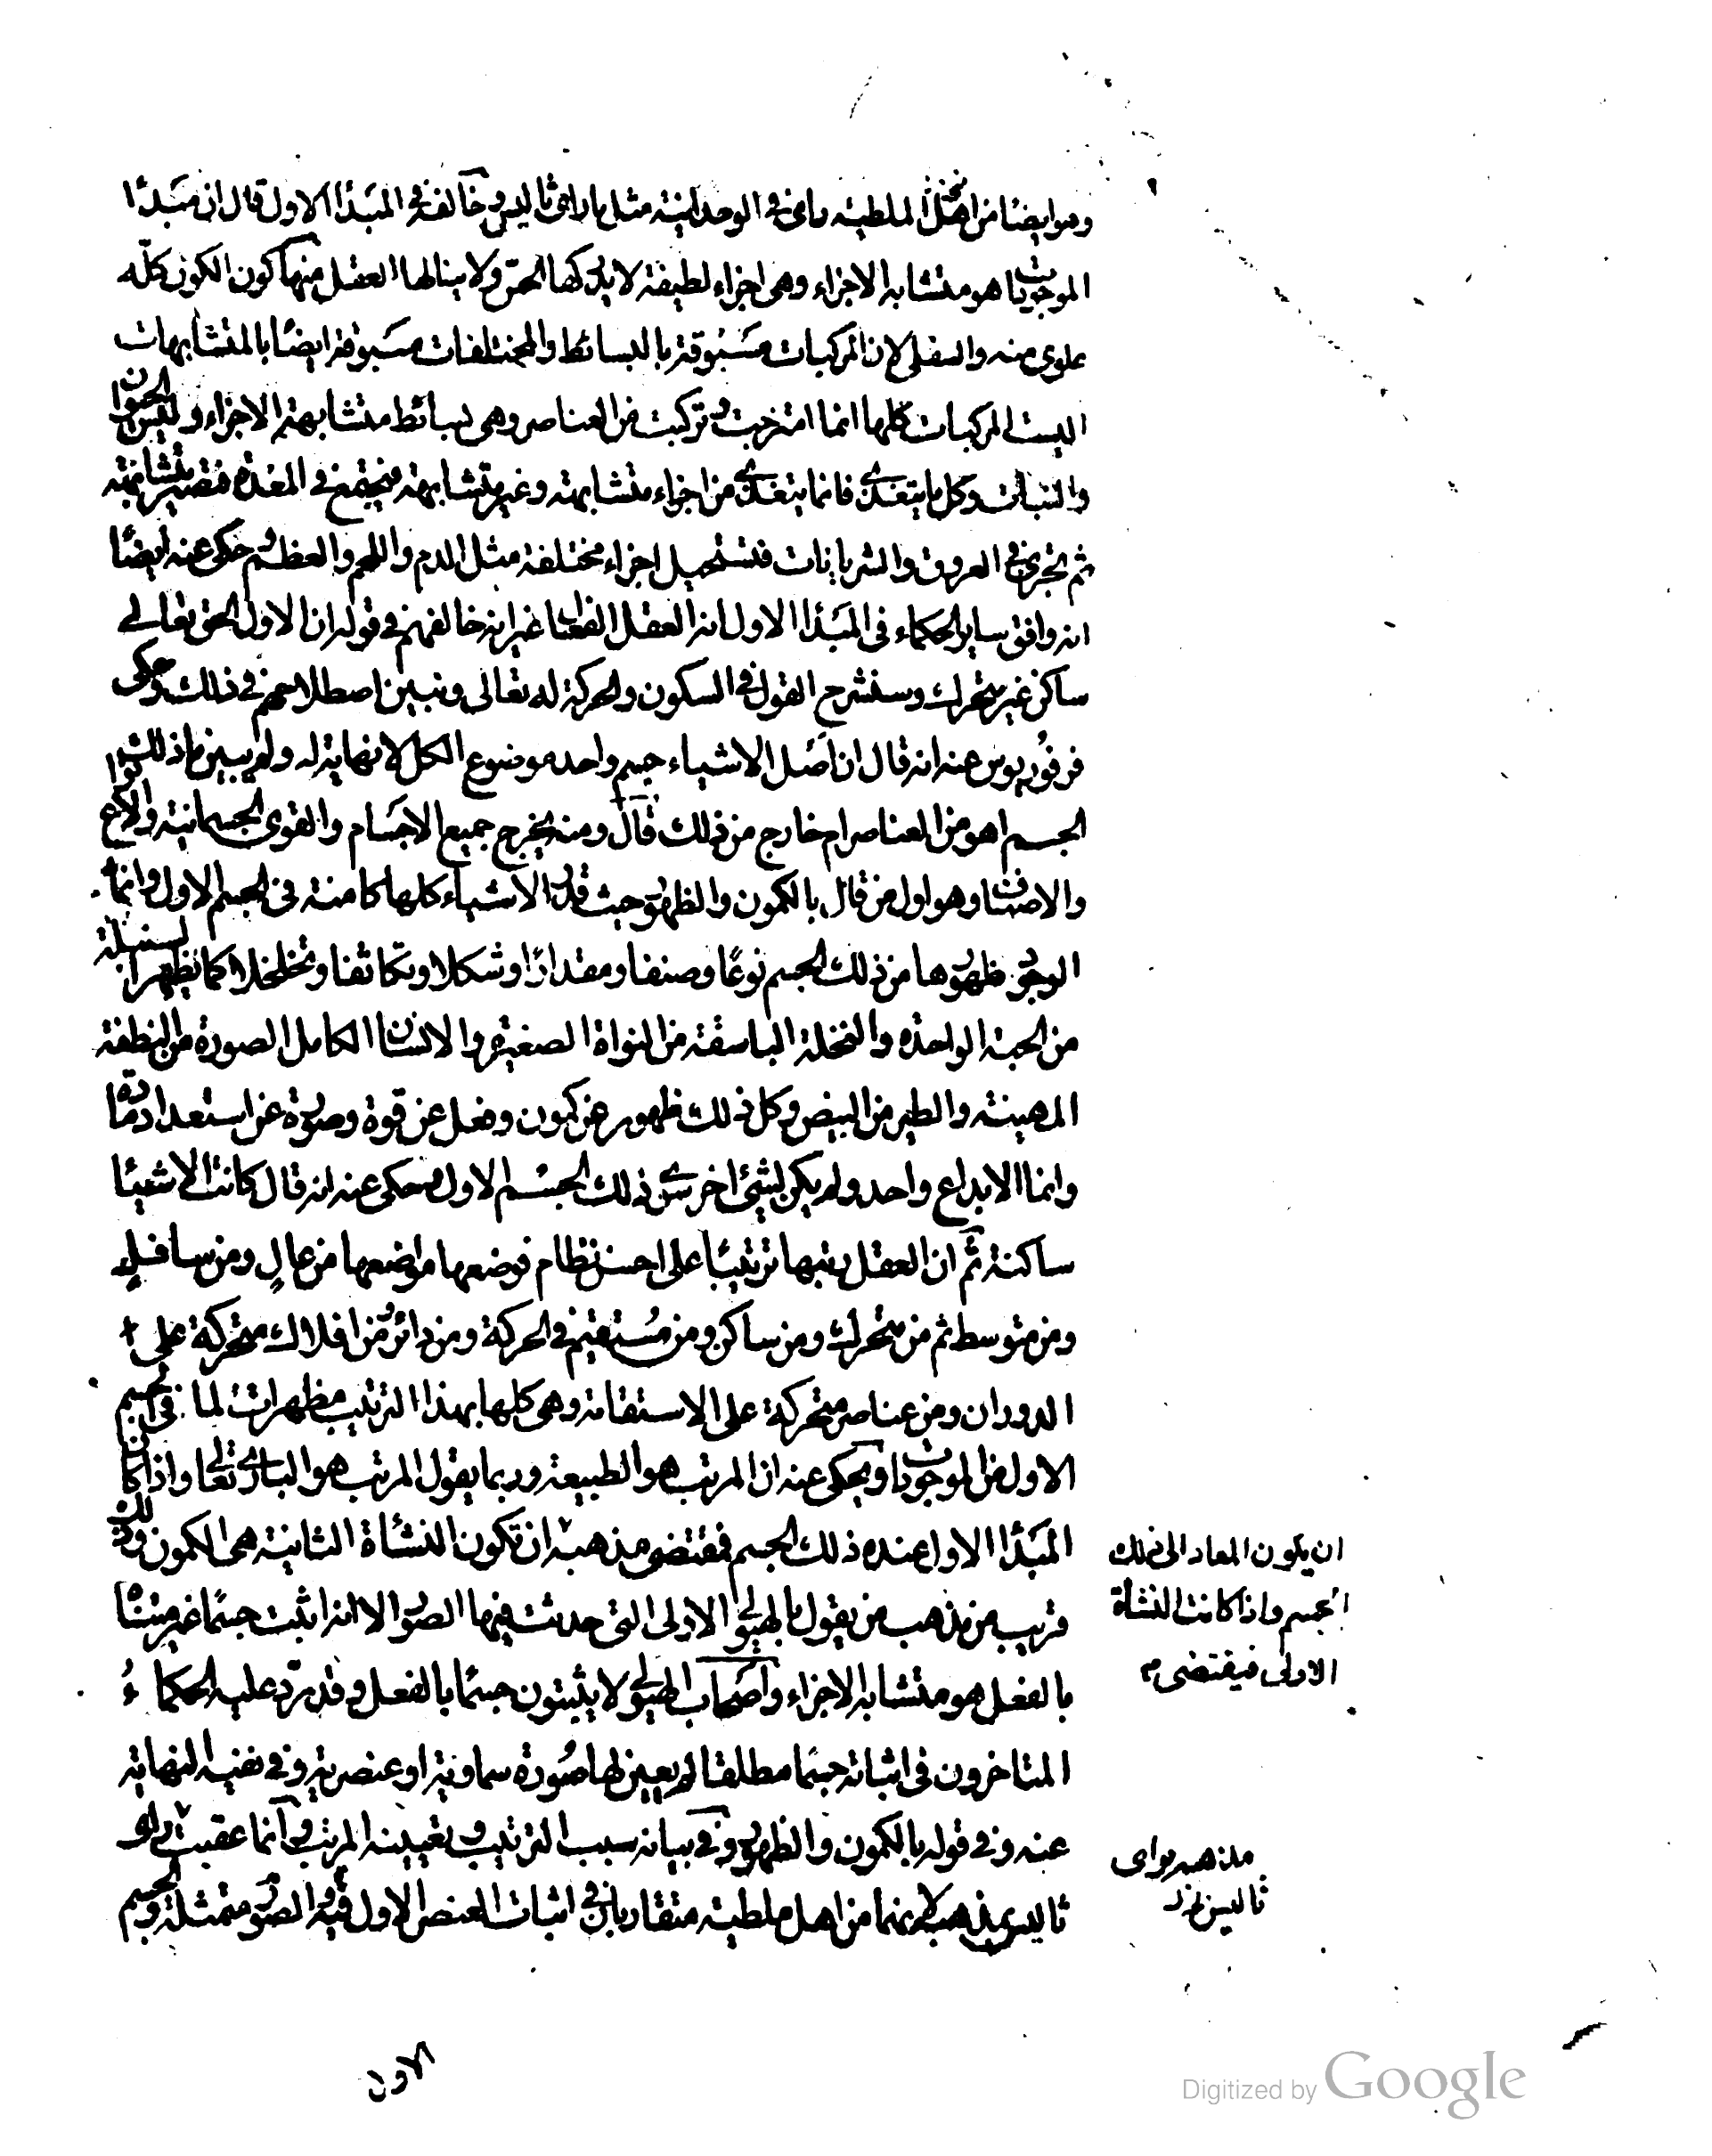 وهو ايضا من اهل الملطية راى فى الوحدانية مثل ما راى ثاليس وخالفه فى المبدا الاول قال ان مبدا
الموجودات هو متشابه الاجزاء وهى اجزاء لطيفة لا يدركها الحس ولا ينالها العقل منها كون الكون كله
علوى منه والسفلى لان المركبات مسبوقة بالبسائط والمختلفات مسبوقة ايضا بالمتشابهات
اليست المركبات كلها انما امتزجت وتركبت من العناصر وهى بسائط متشابهة الاجزاء وليس الحيوان
والنبات وكل ما يتغذى فانما يتغذى من اجزاء متشابهة وغير متشابهة فيجتمع فى المعدة فتصير متشابهة
ثم تجرى فى العروق والشريانات فتستحيل اجزاء مختلفة مثل الدم واللحم والعظم وحكى عنه ايضا
انه وافق ساير الحكماء فى المبدا الاول انه العقل الفعال غير انه خالفهم فى قوله ان الاول الحق تعالى
ساكن غير متحرك وسنشرح القول فى السكون والحركة له تعالى ونبين اصطلاحهم فى ذلك وحكى
فرفوريوس عنه انه قال ان اصل الاشياء جسم واحد موضوع الكل لا نهاية له ولم يبين ما ذلك
الجسم اهو من العناصر ام خارج من ذلك قال ومنه يخرج جميع الاجسام والقوى الجسمانية والانواع
والاصناف وهو اول من قال بالكمون والظهور حيث قدر الاشياء كلها كامنة فى الجسم الاول وانما
الوجود ظهورها من ذلك الجسم نوعا وصنفا ومقدارا وشكلا وتكاثفا وتخلخلا كما تظهر السنبلة
من الحبة الواحدة والنخلة الباسقة من النواة الصغيرة والانسان الكامل الصورة من النطفة
المهينة والطير من البيض وكل ذلك ظهور عن كمون وفعل عن قوة وصورة عن استعداد مادة
وانما الابداع واحد ولم يكن لشئ اخر سوى ذلك الجسم الاول وحكى عنه انه قال كانت الاشيا
ساكنة ثم ان العقل رتبها ترتيبا على احسن نظام فوضعها مواضعها من عال ومن سافل
ومن متوسط ثم من متحرك ومن ساكن ومن مستقيم فى الحركة ومن دائر ومن افلاك متحركة على
الدوران ومن عناصر متحركة على الاستقامة وهى كلها بهذا الترتيب مظهرات لما فى الجسم
الاول من الموجودات ويحكى عنه ان المرتب هو الطبيعة وربما يقول المرتب هو البارى تعالى واذا كان
المبدا الاول عنده ذلك الجسم فمقتضى مذهبه ان تكون النشاة الثانية هى الكمون وذلك
ان يكون المعاد الى ذلك
الجسم واذا كانت النشاة
الاولى فيقتضى
قريب من مذهب من يقول بالهيولى الاولى التى حدثت فيها الصور الا انه اثبت جسما غير متناه
بالفعل هو متشابه الاجزاء واصحاب الهيولى لا يثبتون جسما بالفعل وقد رد عليه الحكماء
المتاخرون فى اثباته جسما مطلقا لم يعين لها صورة سماوية او عنصرية وفى نفيه النهاية
عنه وفى قوله بالكمون والظهور وفى بيانه سبب الترتيب وتعيينه المرتب وانما عقبت براى
مذهبه براى
ثاليس
ثاليس مذهبه لانهما من اهل ملطية متقاربان فى اثبات العنصر الاول والصور فيه متمثلة والجسم
الاول
Digitized by Google